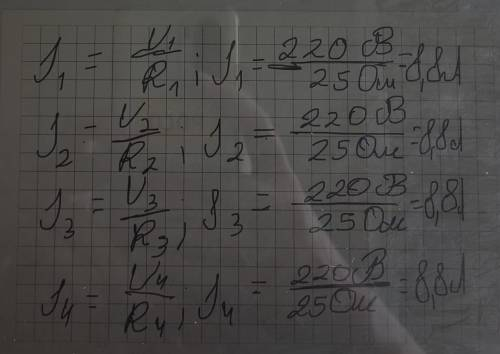 J₁ = U₁/R₁; J₁ = 220 В/25 Ом = 8,8А
J₂ = U₂/R₂; J₂ = 220 В/25 Ом = 8,8А
J₃ = U₃/R₃; J₃ = 220 В/25 Ом = 8,8А
J₄ = U₄/R₄; J₄ = 220 В/25 Ом = 8,8А